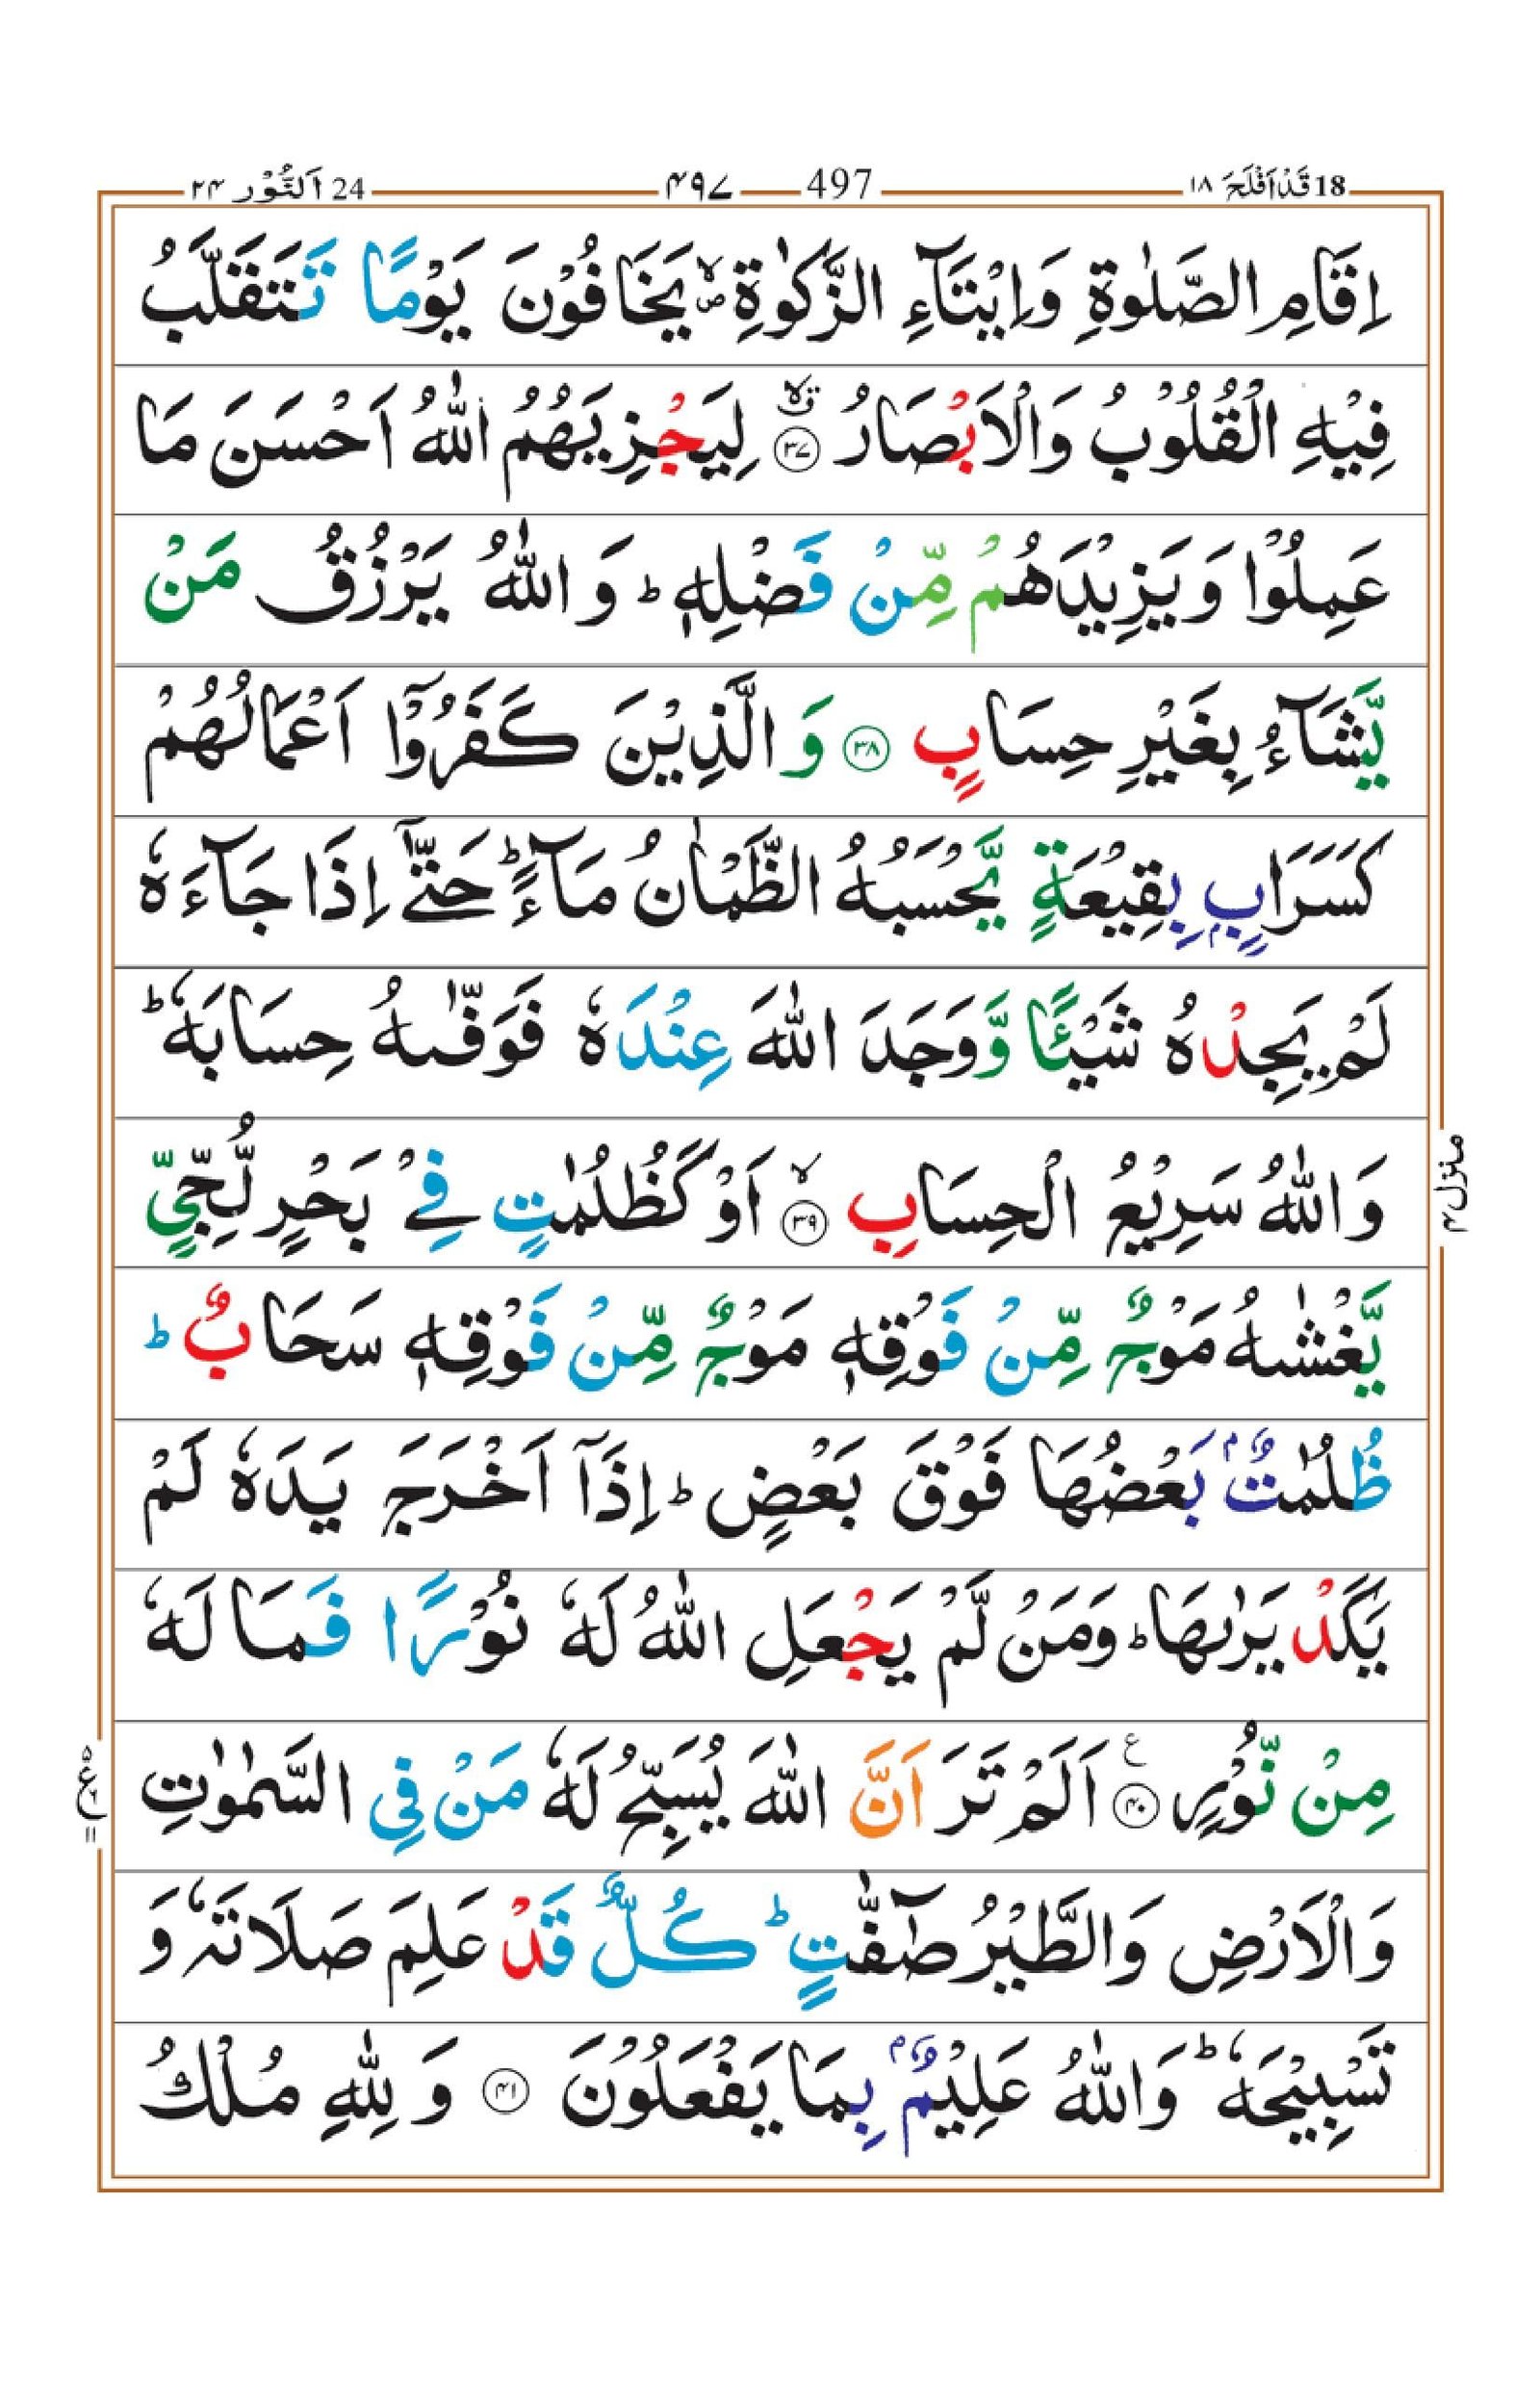 18 قَدْ اَفْلَحَ ۱۸
497 ۴۹۷
24 اَلنُّوْر ۲۴
اِقَامِ الصَّلٰوةِ وَاِيْتَآءِ الزَّكٰوةِ ۪ۙ يَخَافُوْنَ يَوْمًا تَتَقَلَّبُ
فِيْهِ الْقُلُوْبُ وَالْاَبْصَارُ ۙ۝۳۷ لِيَجْزِيَهُمُ اللّٰهُ اَحْسَنَ مَا
عَمِلُوْا وَيَزِيْدَهُمْ مِّنْ فَضْلِهٖ ؕ وَاللّٰهُ يَرْزُقُ مَنْ
يَّشَآءُ بِغَيْرِ حِسَابٍ ۝۳۸ وَالَّذِيْنَ كَفَرُوْٓا اَعْمَالُهُمْ
كَسَرَابٍۭ بِقِيْعَةٍ يَّحْسَبُهُ الظَّمْاٰنُ مَآءً ؕ حَتّٰٓى اِذَا جَآءَهٗ
لَمْ يَجِدْهُ شَيْـًٔا وَّوَجَدَ اللّٰهَ عِنْدَهٗ فَوَفّٰىهُ حِسَابَهٗ ؕ
وَاللّٰهُ سَرِيْعُ الْحِسَابِ ۙ۝۳۹ اَوْ كَظُلُمٰتٍ فِيْ بَحْرٍ لُّجِّيٍّ
يَّغْشٰىهُ مَوْجٌ مِّنْ فَوْقِهٖ مَوْجٌ مِّنْ فَوْقِهٖ سَحَابٌ ؕ
ظُلُمٰتٌۢ بَعْضُهَا فَوْقَ بَعْضٍ ؕ اِذَآ اَخْرَجَ يَدَهٗ لَمْ
يَكَدْ يَرٰىهَا ؕ وَمَنْ لَّمْ يَجْعَلِ اللّٰهُ لَهٗ نُوْرًا فَمَا لَهٗ
مِنْ نُّوْرٍ ۝۴۰ ع اَلَمْ تَرَ اَنَّ اللّٰهَ يُسَبِّحُ لَهٗ مَنْ فِي السَّمٰوٰتِ
وَالْاَرْضِ وَالطَّيْرُ صٰٓفّٰتٍ ؕ كُلٌّ قَدْ عَلِمَ صَلَاتَهٗ وَ
تَسْبِيْحَهٗ ؕ وَاللّٰهُ عَلِيْمٌۢ بِمَا يَفْعَلُوْنَ ۝۴۱ وَلِلّٰهِ مُلْكُ
منزل ۴
ع ۵ ۱۱